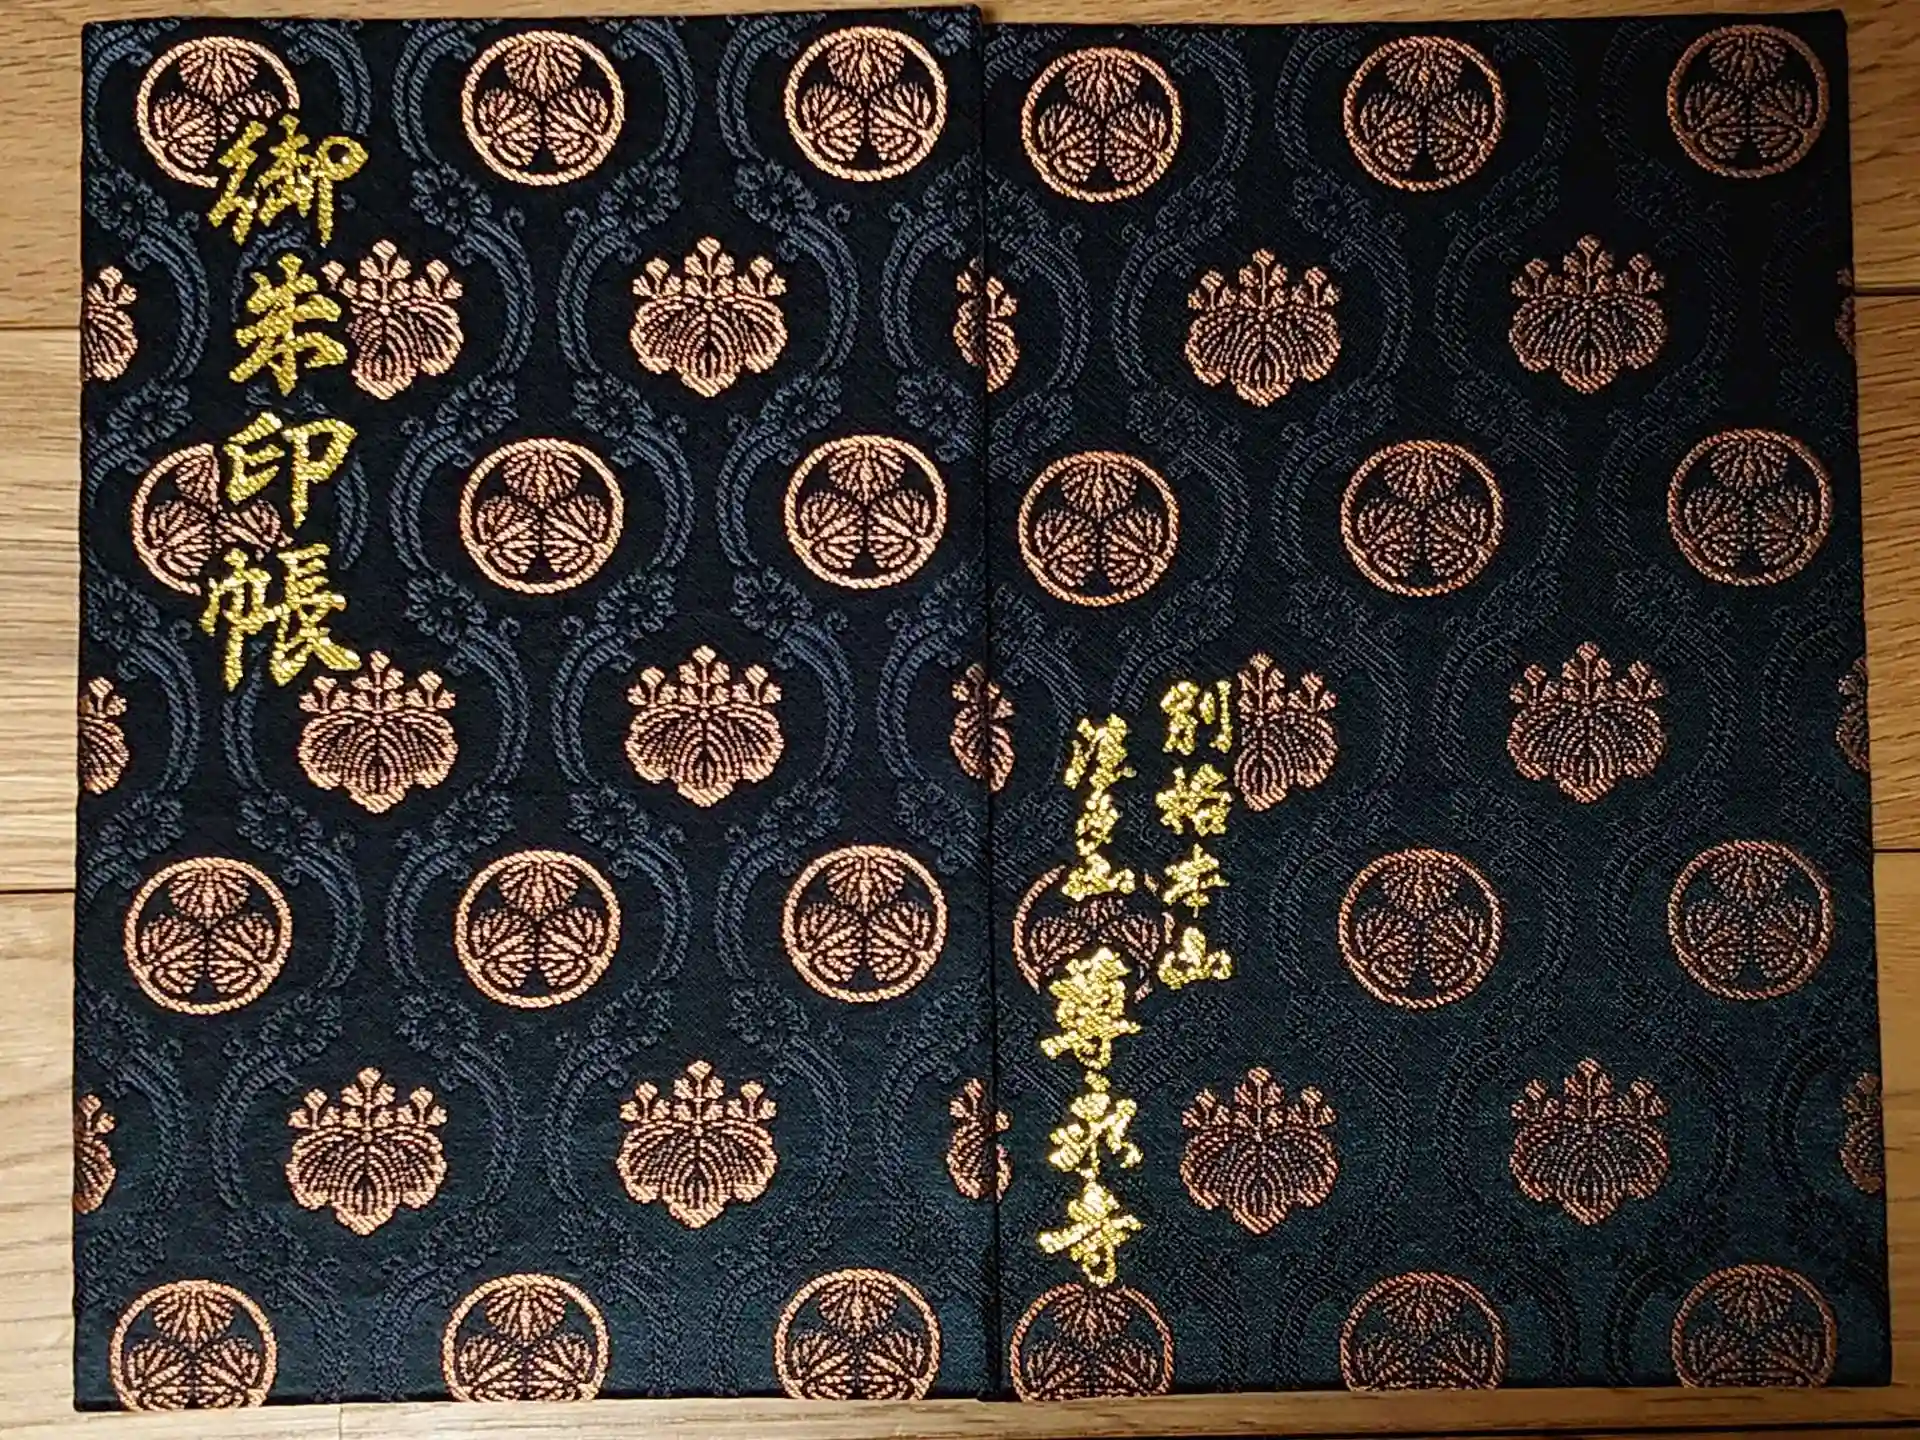 御朱印帳
別格本山
津島山 尊永寺